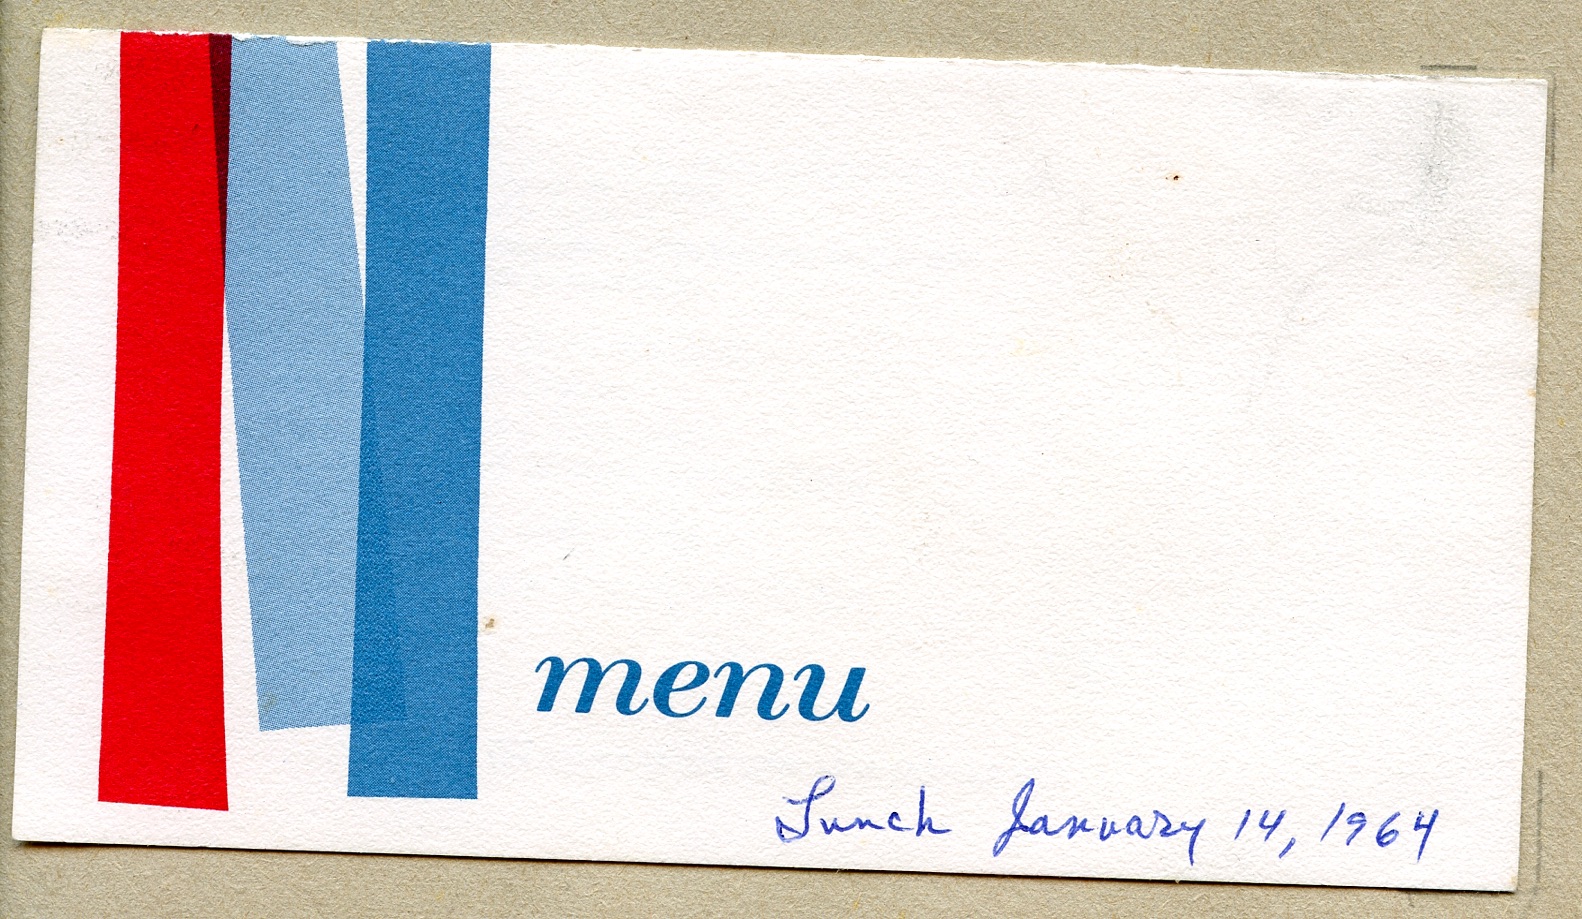 menu
Lunch January 14, 1964